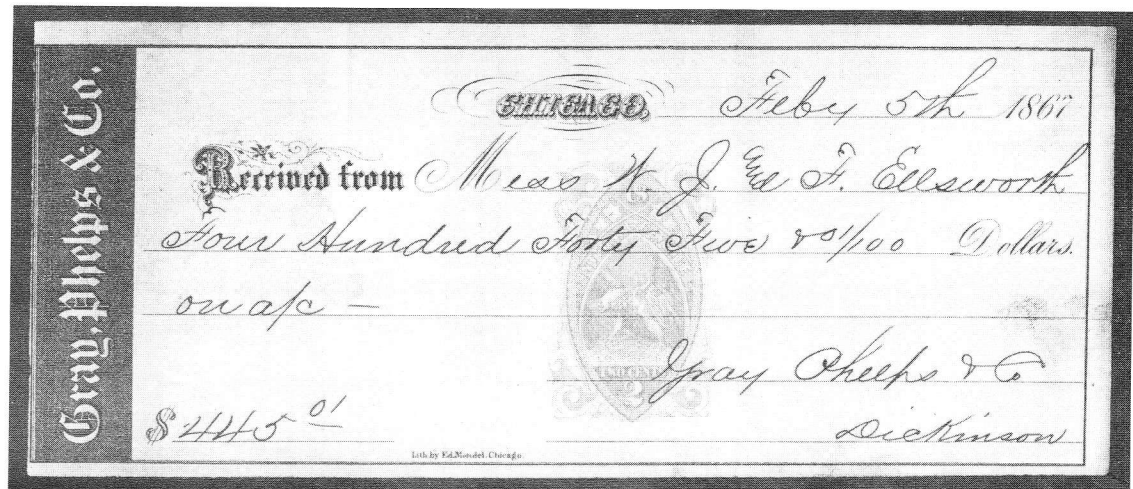 Gray, Phelps & Co.
CHICAGO, Feby 5th 1867
Received from Mess W. J. & F. Ellsworth
Four Hundred Forty Five & 01/100 Dollars.
on a/c —
Gray Phelps & Co
$445 01 Dickinson
Lith. by Ed. Mendel, Chicago.